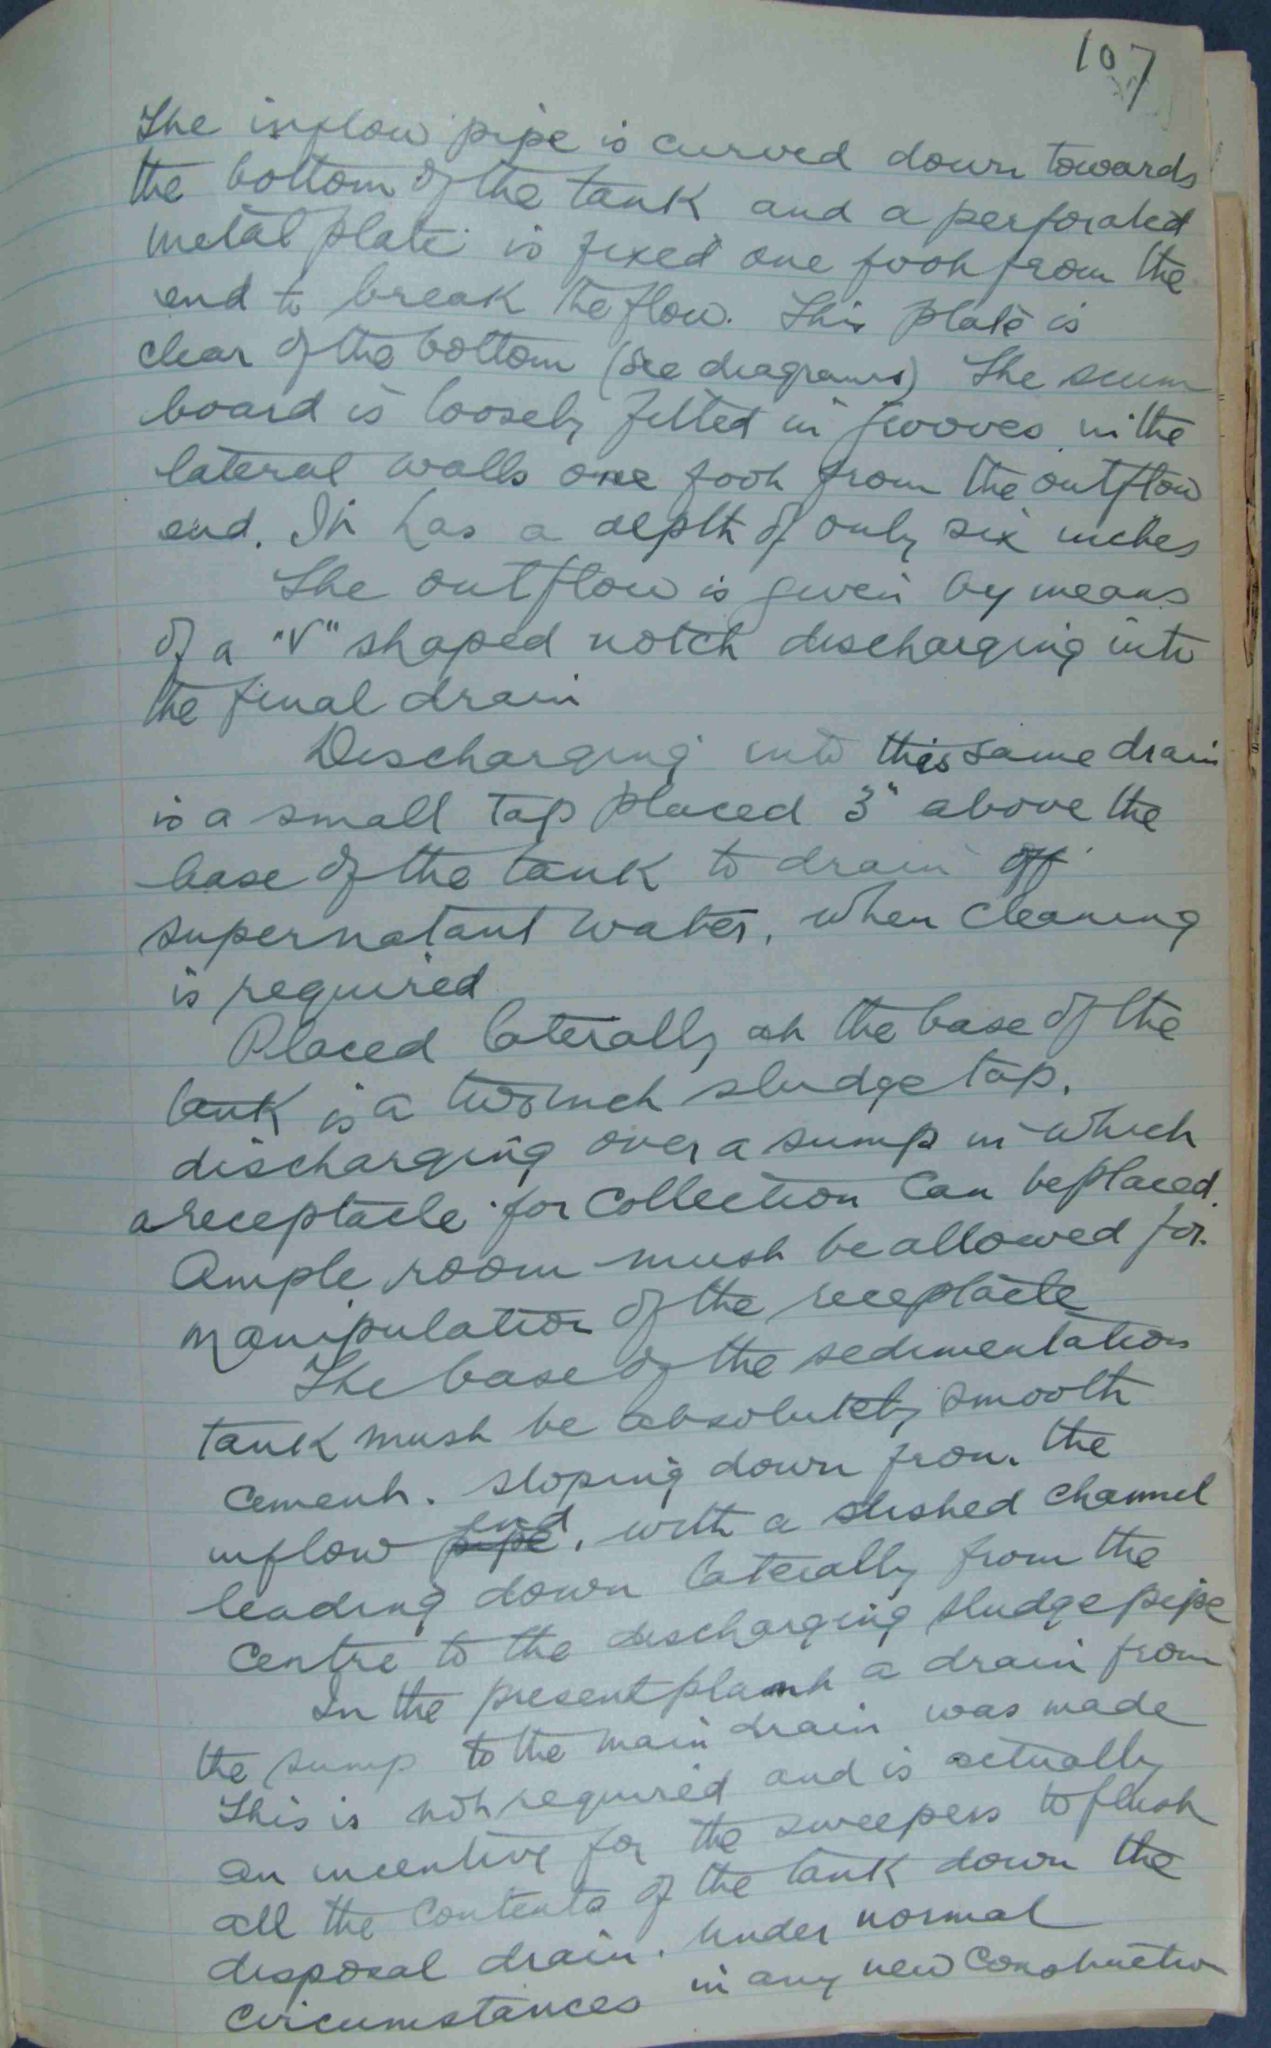 107
The inflow pipe is curved down towards
the bottom of the tank and a perforated
metal plate is fixed one foot from the
end to break the flow. This plate is
clear of the bottom (see diagrams) The scum
board is loosely fitted in grooves in the
lateral walls one foot from the outflow
end. It has a depth of only six inches
The outflow is given by means
of a "V" shaped notch discharging into
the final drain
Discharging into this same drain
is a small tap placed 3" above the
base of the tank to drain off
supernatant water, when cleaning
is required
Placed laterally at the base of the
tank is a two inch sludge tap.
discharging over a sump in which
a receptacle for collection can be placed.
Ample room must be allowed for
manipulation of the receptacle
The base of the sedimentation
tank must be absolutely smooth
cement. sloping down from the
end
inflow pipe, with a dished channel
leading down laterally from the
centre to the discharging sludge pipe
In the present plant a drain from
the sump to the main drain was made
This is not required and is actually
an incentive for the sweepers to flush
all the contents of the tank down the
disposal drain. Under normal
circumstances in any new construction